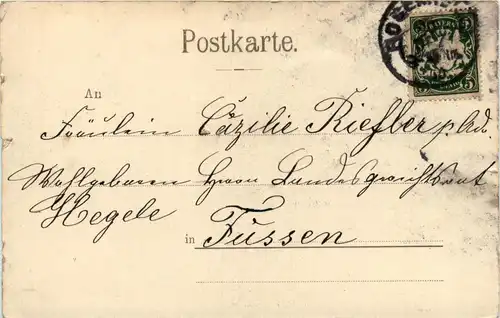 Postkarte.
An
Fräulein Cäzilie Riefler p. Ad.
Wohlgeboren Herrn Landesgerichtsrat
Hegele
in Füssen
5 5